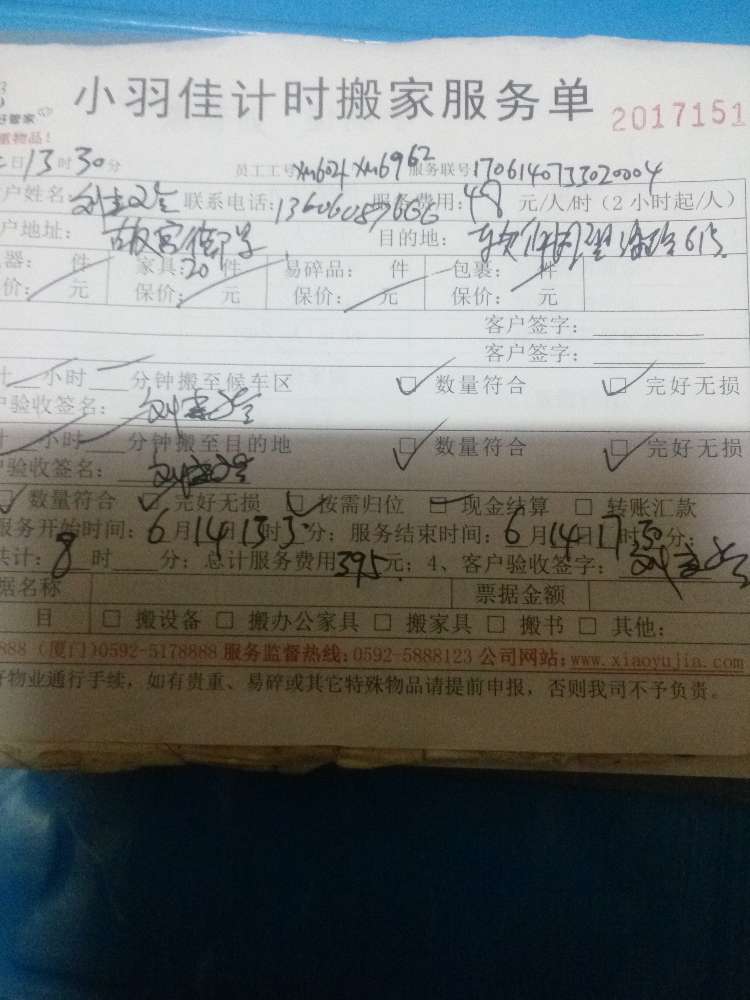 小羽佳计时搬家服务单 2017151
好管家
重物品！
日13时30分 员工工号 xm6021 xm6962 服务联号1706140733020004
户姓名: 联系电话: 服务费用:48元/人/时（2小时起/人）
户地址: 目的地:
器: 件 家具:20件 易碎品: 件 包裹: 件
价: 元 保价: 元 保价: 元 保价: 元
客户签字:
客户签字:
计 小时 分钟搬至候车区 □ 数量符合 □ 完好无损
户验收签名:
计 小时 分钟搬至目的地 □ 数量符合 □ 完好无损
户验收签名:
□ 数量符合 □ 完好无损 □ 按需归位 □ 现金结算 □ 转账汇款
服务开始时间: 6月14日13时3分；服务结束时间: 6月14日17时30分；
共计: 8时 分；总计服务费用395元；4、客户验收签字:
据名称 票据金额
目 □ 搬设备 □ 搬办公家具 □ 搬家具 □ 搬书 □ 其他:
888（厦门）0592-5178888 服务监督热线:0592-5888123 公司网站:www.xiaoyujia.com
好物业通行手续，如有贵重、易碎或其它特殊物品请提前申报，否则我司不予负责。